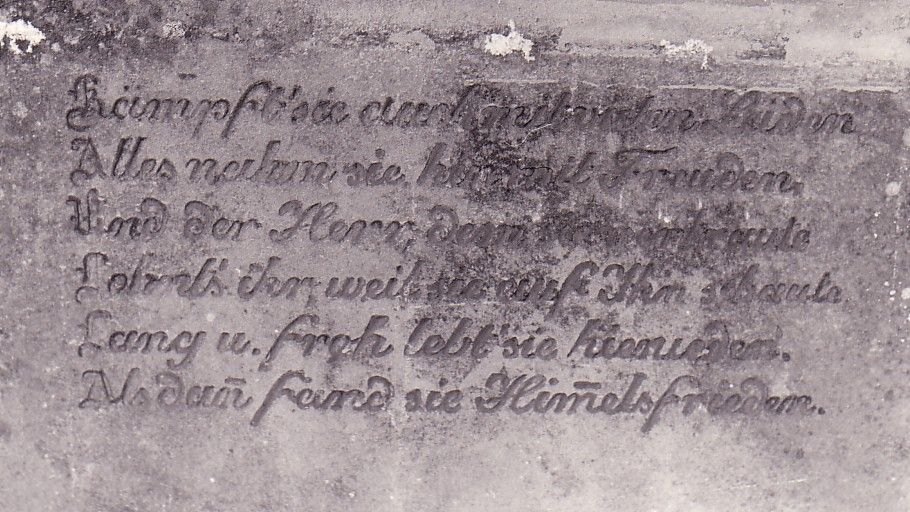 Kämpft' sie auch mit vielen Leiden
Alles nahm sie hin mit Freuden,
Und der Herr, dem sie vertraute
Lohnt's ihr, weil sie auf Ihn schaute
Lang u. froh lebt' sie hienieden.
Alsdan̄ fand sie Him̄elsfrieden.